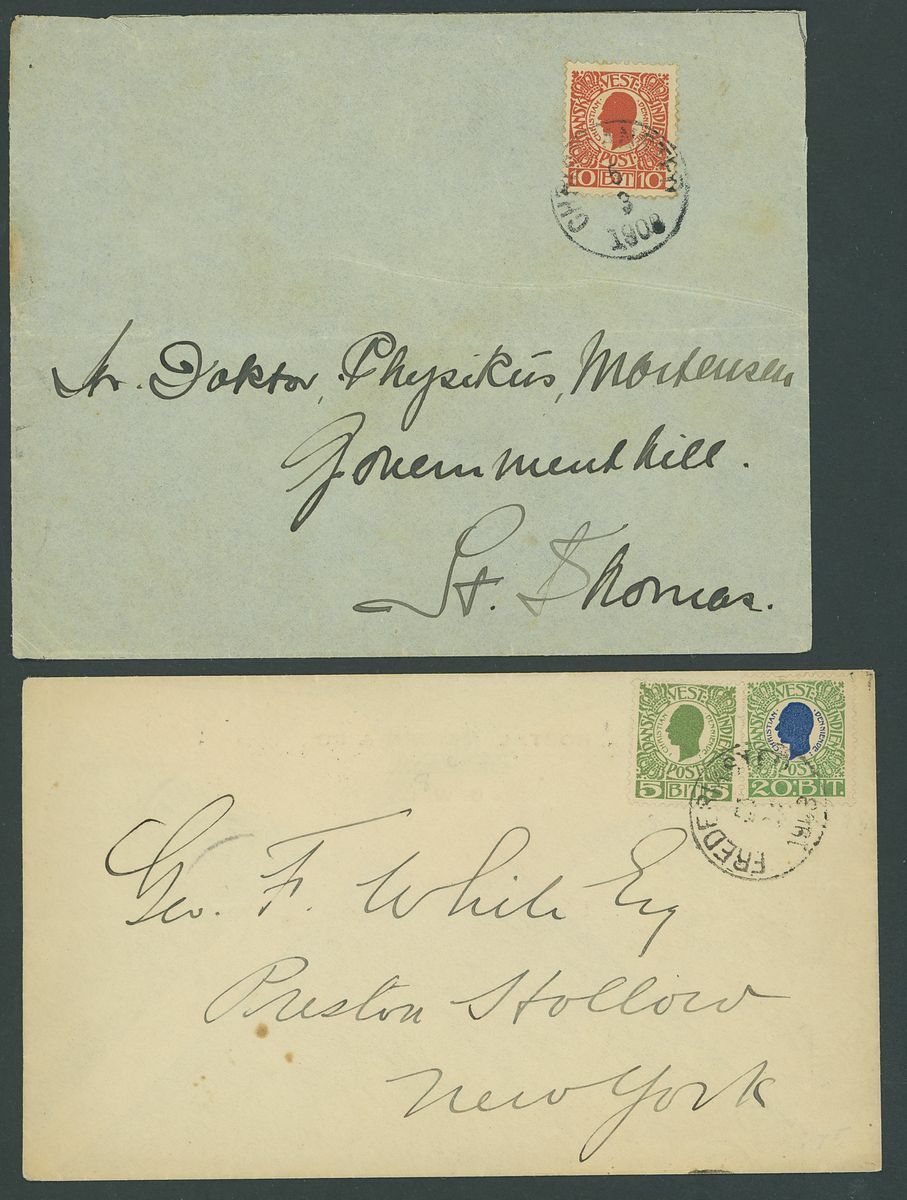 DANSK VEST: INDIEN
CHRISTIAN· DEN NIENDE
POST
10 BIT 10
5
3
1908
Hr. Doktor, Physikus, Mortensen
Governmenthill.
St. Thomas.
DANSK VEST: INDIEN
CHRISTIAN· DEN NIENDE
POST:
5 BIT 5
DANSK VEST: INDIEN
CHRISTIAN· DEN NIENDE
POST
20: BIT.
Geo. F. White Esq
Preston Hollow
New York